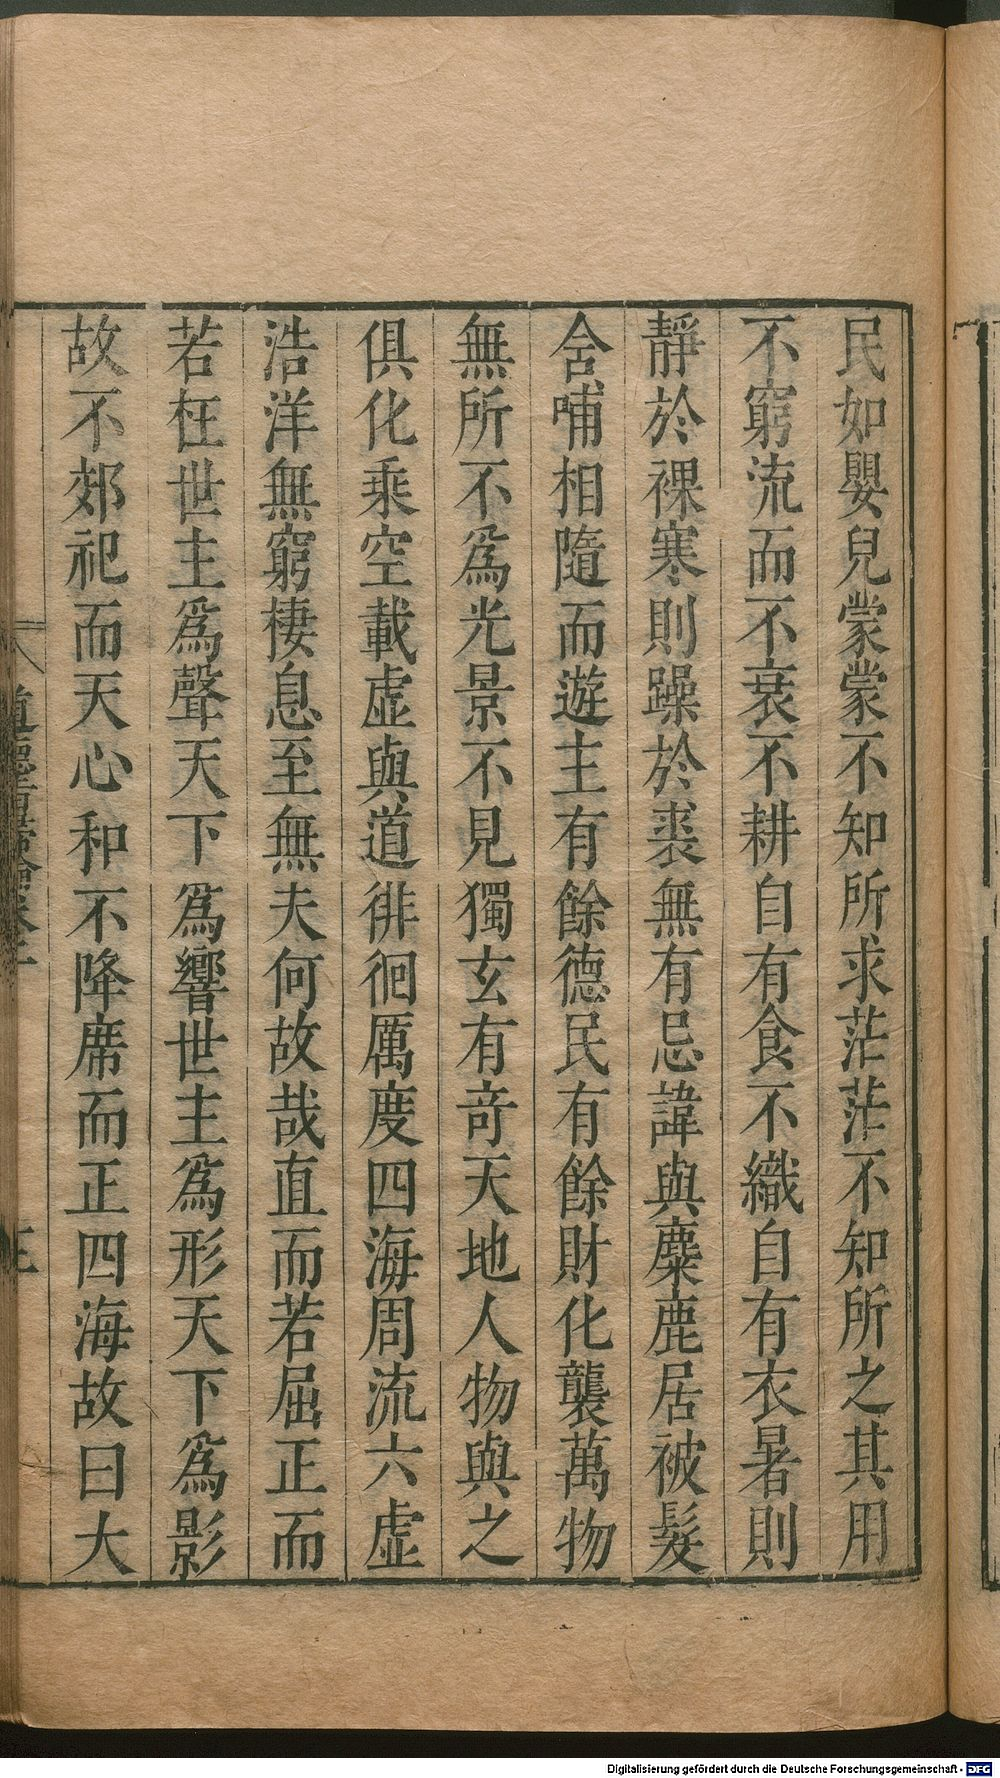 民如嬰兒蒙蒙不知所求茫茫不知所之其用
不窮流而不衰不耕自有食不織自有衣暑則
靜於裸寒則躁於裘無有忌諱與麋鹿居被髮
含哺相隨而遊主有餘德民有餘財化襲萬物
無所不爲光景不見獨玄有竒天地人物與之
俱化乘空載虛與道徘徊厲度四海周流六虛
浩洋無窮棲息至無夫何故哉直而若屈正而
若枉世主爲聲天下爲響世主爲形天下爲影
故不郊祀而天心和不降席而正四海故曰大
Digitalisierung gefördert durch die Deutsche Forschungsgemeinschaft - DFG